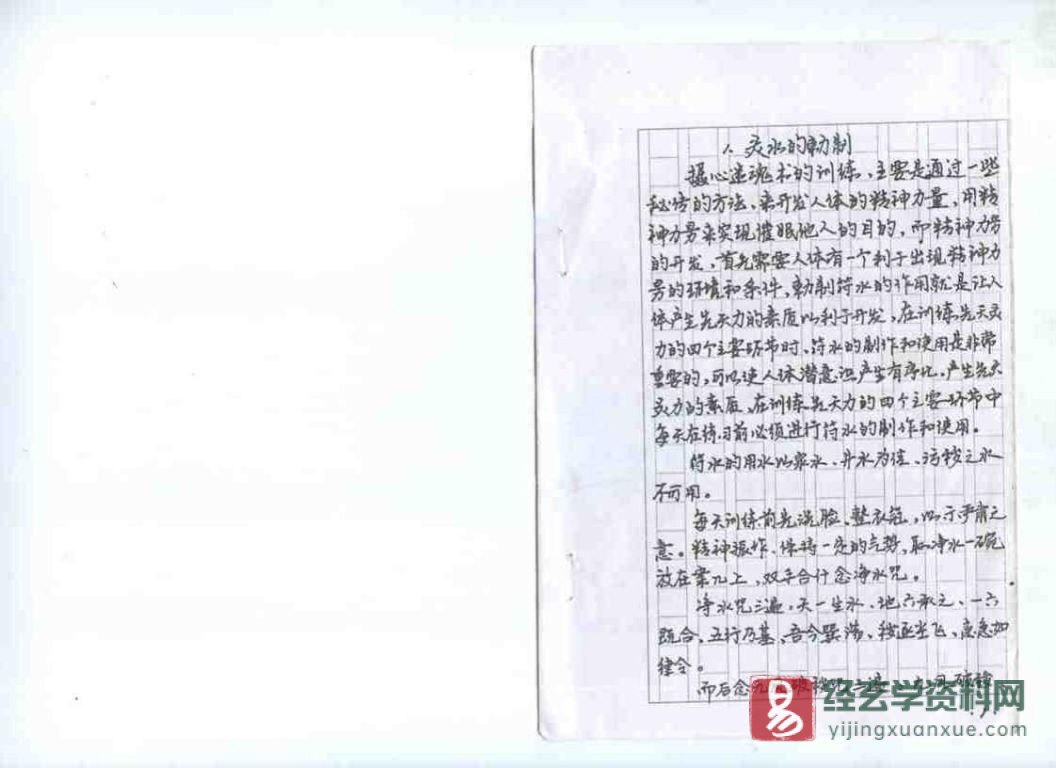 1、灵水的勅制
摄心迷魂术的训练、主要是通过一些
秘传的方法、来开发人体的精神力量、用精
神力量来实现催眠他人的目的，而精神力量
的开发、首先需要人体有一个利于出现精神力
量的环境和条件，勅制符水的作用就是让人
体产生先天力的素质以利于开发，在训练先天灵
力的四个主要环节时、符水的制作和使用是非常
重要的，可以使人体潜意识产生有序化、产生先天
灵力的素质、在训练先天力的四个主要环节中
每天在练习前必须进行符水的制作和使用。
符水的用水以泉水、井水为佳、污秽之水
不可用。
每天训练前先洗脸、整衣冠，以示严肃之
意。精神振作、保持一定的气势，取净水一碗
放在案几上，双手合什念净水咒。
净水咒三遍，天一生水、地六承之、一六
既合、五行乃基、吾今 荡、秽逐尘飞、急急如
律令。
而后念 破秽
经玄学资料网
yijingxuanxue.com
易